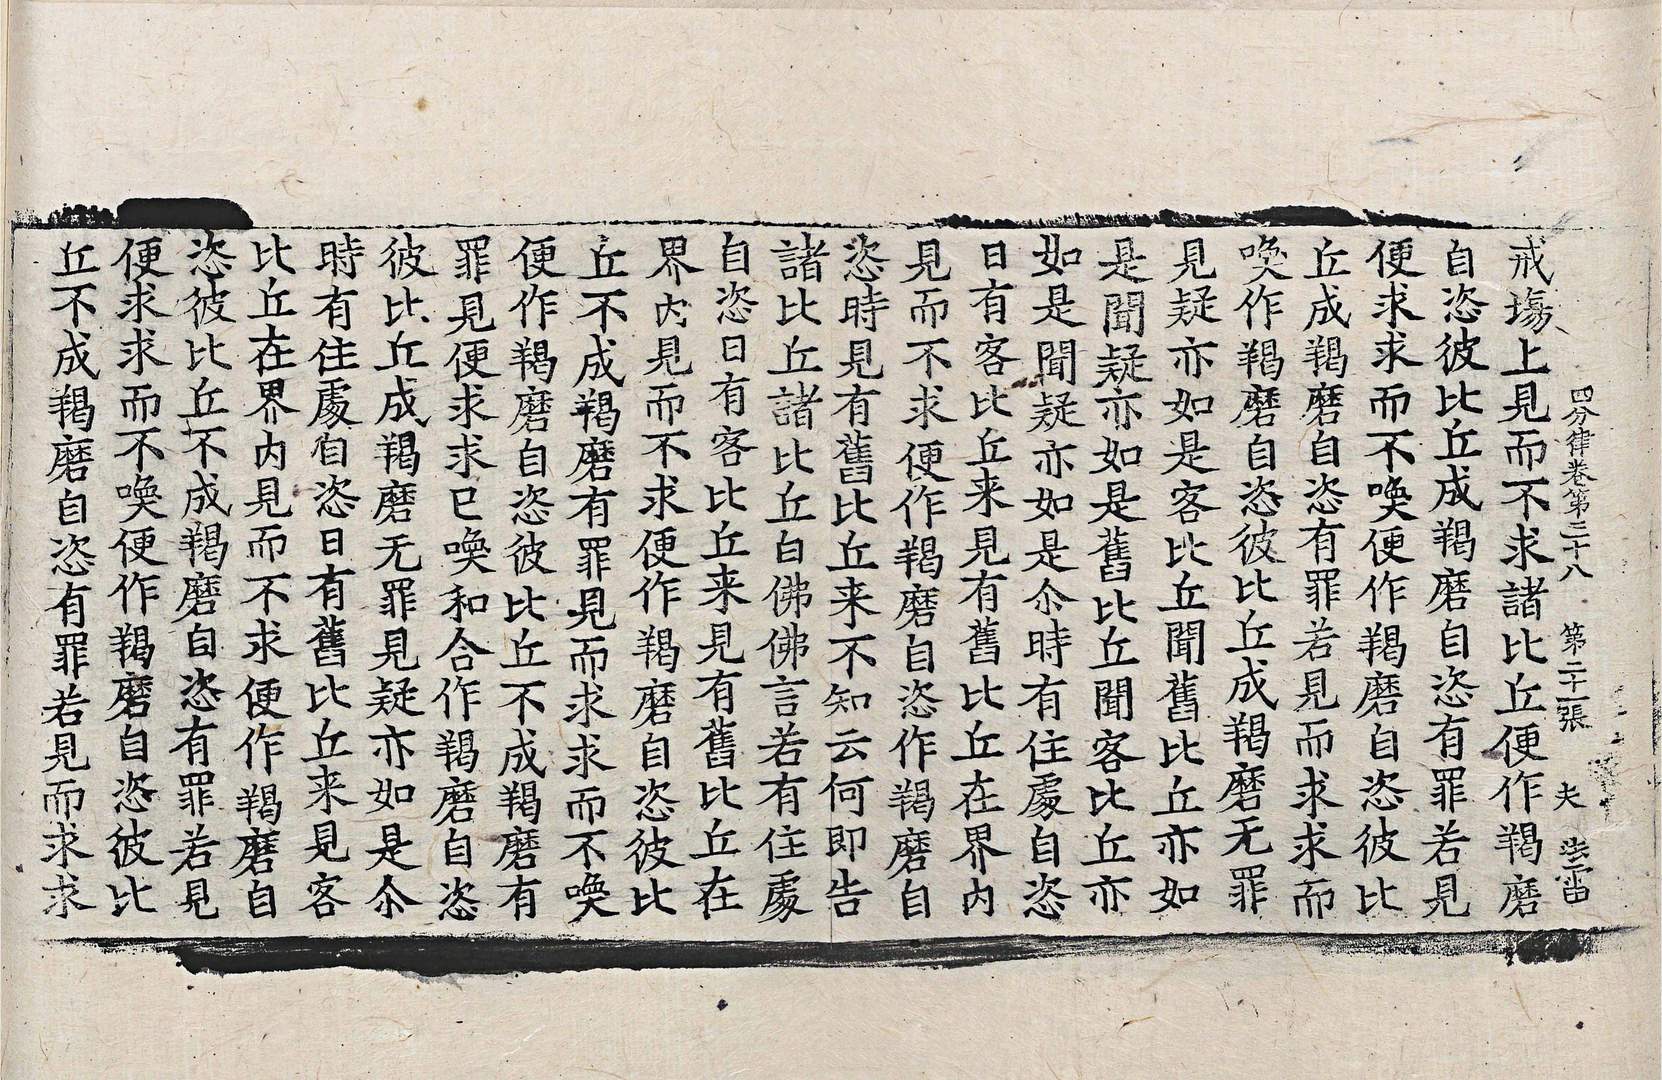 四分律卷第三十八 第二十一張 夫
戒塲上見而不求諸比丘便作羯磨
自恣彼比丘成羯磨自恣有罪若見
便求求而不喚便作羯磨自恣彼比
丘成羯磨自恣有罪若見而求求而
喚作羯磨自恣彼比丘成羯磨无罪
見疑亦如是客比丘聞舊比丘亦如
是聞疑亦如是舊比丘聞客比丘亦
如是聞疑亦如是尒時有住處自恣
日有客比丘来見有舊比丘在界内
見而不求便作羯磨自恣作羯磨自
恣時見有舊比丘来不知云何即告
諸比丘諸比丘白佛佛言若有住處
自恣日有客比丘来見有舊比丘在
界内見而不求便作羯磨自恣彼比
丘不成羯磨有罪見而求求而不喚
便作羯磨自恣彼比丘不成羯磨有
罪見便求求已喚和合作羯磨自恣
彼比丘成羯磨无罪見疑亦如是尒
時有住處自恣日有舊比丘来見客
比丘在界内見而不求便作羯磨自
恣彼比丘不成羯磨自恣有罪若見
便求求而不喚便作羯磨自恣彼比
丘不成羯磨自恣有罪若見而求求